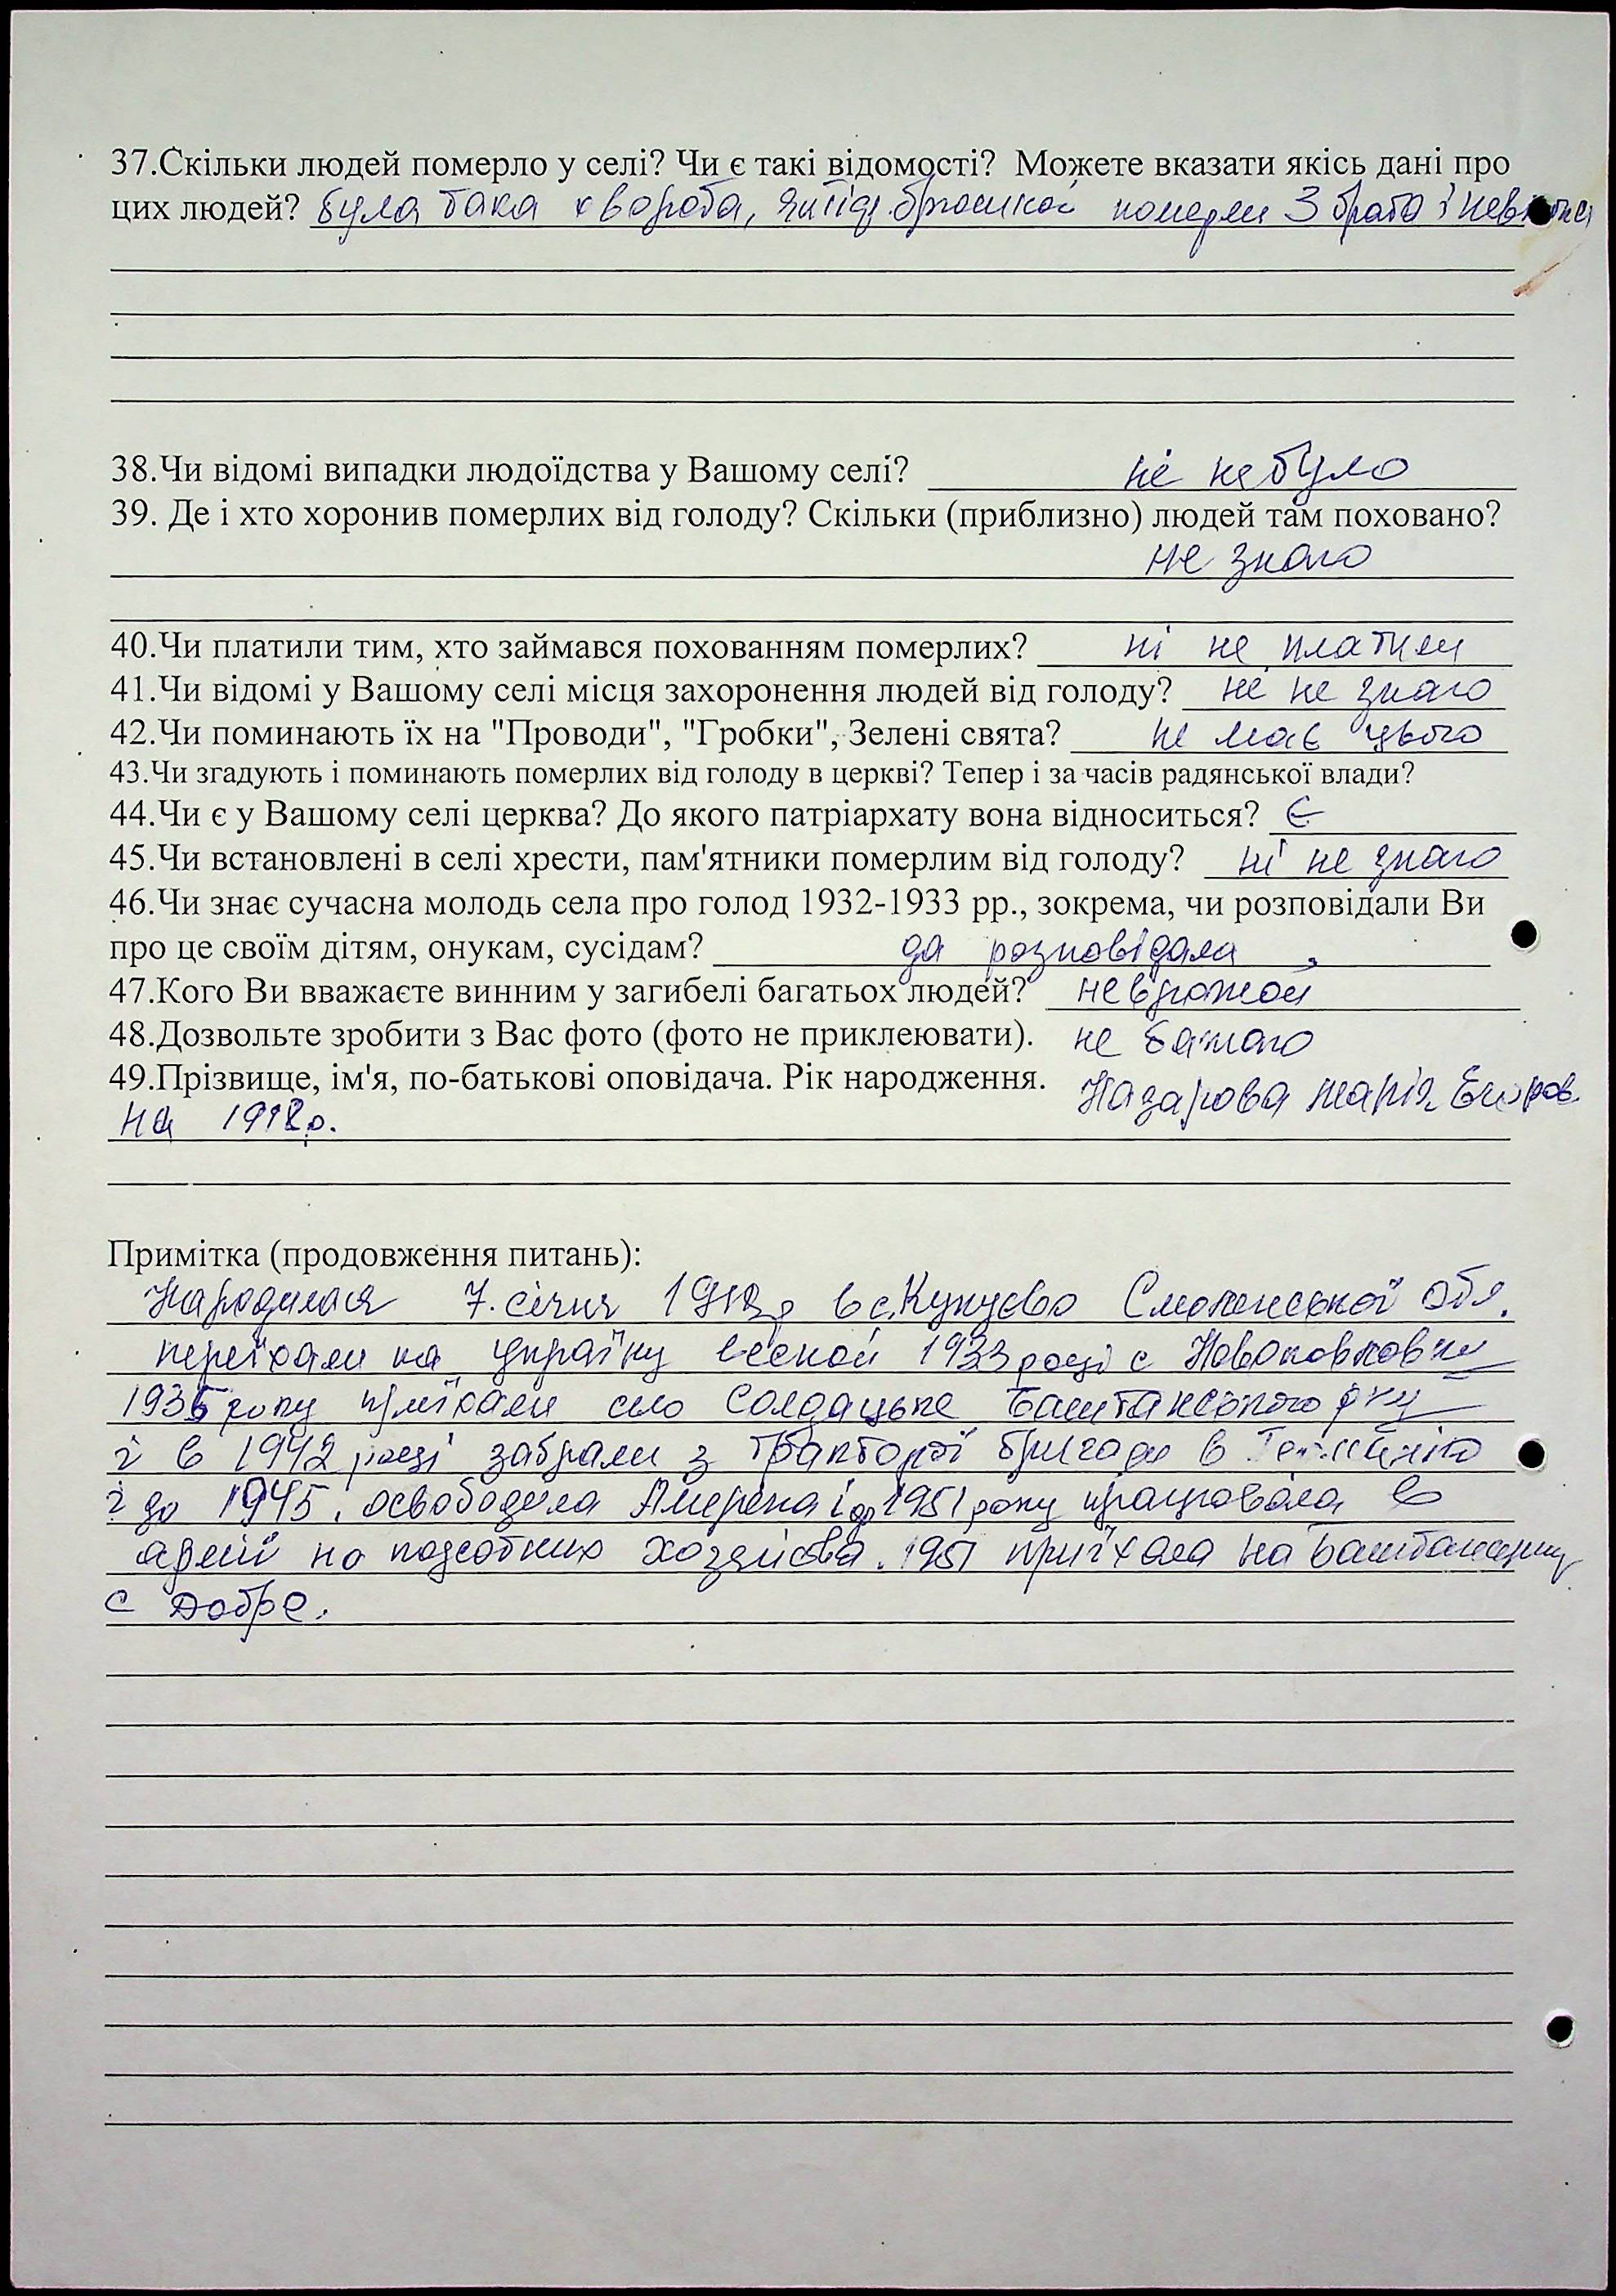 37.Скільки людей померло у селі? Чи є такі відомості? Можете вказати якісь дані про
цих людей? була така хвороба, померли 3 брата і невістка
38.Чи відомі випадки людоїдства у Вашому селі? не небуло
39. Де і хто хоронив померлих від голоду? Скільки (приблизно) людей там поховано?
не знаю
40.Чи платили тим, хто займався похованням померлих? ні не платили
41.Чи відомі у Вашому селі місця захоронення людей від голоду? не не знаю
42.Чи поминають їх на "Проводи", "Гробки", Зелені свята? не має цього
43.Чи згадують і поминають померлих від голоду в церкві? Тепер і за часів радянської влади?
44.Чи є у Вашому селі церква? До якого патріархату вона відноситься? Є
45.Чи встановлені в селі хрести, пам'ятники померлим від голоду? ні не знаю
46.Чи знає сучасна молодь села про голод 1932-1933 рр., зокрема, чи розповідали Ви
про це своїм дітям, онукам, сусідам? да розповідала
47.Кого Ви вважаєте винним у загибелі багатьох людей? неврожай
48.Дозвольте зробити з Вас фото (фото не приклеювати). не бажаю
49.Прізвище, ім'я, по-батькові оповідача. Рік народження. Назарова Марія Егоров
на
Примітка (продовження питань):
Народилася 7. січня в с. Смоленської обл.
переїхали на україну весной 1933 році с
року приїхали село Солдацьке Баштанського р-ну
і в 1942 році забрали з тракторої бригади в
і до 1945. освободила Америка і до 1951 року працювала в
армії на подсобних хозяйства. 1951 приїхала на Баштанщину
с Добре.